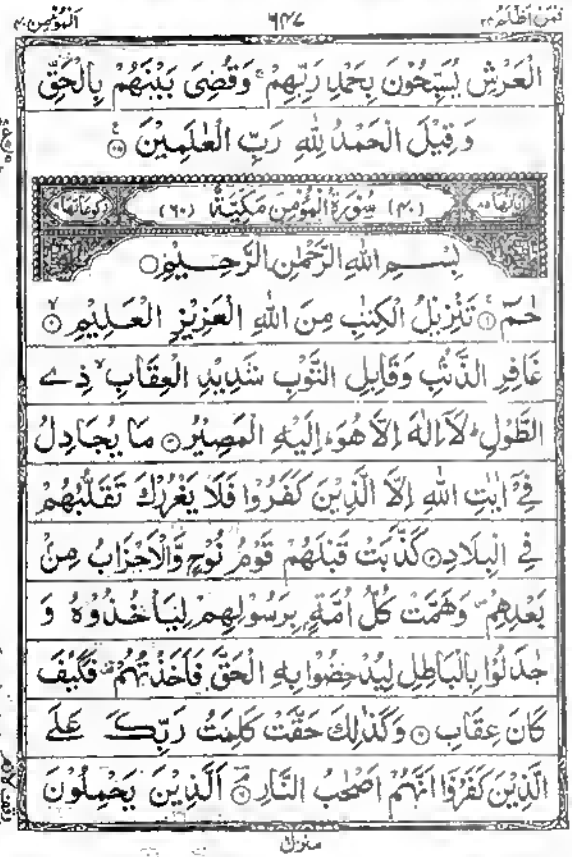 فمن اظلم ٢٤ ٦٤٧ المؤمن ٤٠
الْعَرْشِ يُسَبِّحُوْنَ بِحَمْدِ رَبِّهِمْ ۚ وَقُضِيَ بَيْنَهُمْ بِالْحَقِّ
وَقِيْلَ الْحَمْدُ لِلّٰهِ رَبِّ الْعٰلَمِيْنَ ۝
اٰيَاتُهَا ٨٥ (٤٠) سُوْرَةُ الْمُؤْمِنِ مَكِّيَّةٌ (٦٠) رُكُوْعَاتُهَا ٩
بِسْمِ اللّٰهِ الرَّحْمٰنِ الرَّحِيْمِ ۝
حٰمٓ ۝ تَنْزِيْلُ الْكِتٰبِ مِنَ اللّٰهِ الْعَزِيْزِ الْعَلِيْمِ ۝
غَافِرِ الذَّنْۢبِ وَقَابِلِ التَّوْبِ شَدِيْدِ الْعِقَابِ ۙ ذِے
الطَّوْلِ ؕ لَاۤ اِلٰهَ اِلَّا هُوَ ؕ اِلَيْهِ الْمَصِيْرُ ۝ مَا يُجَادِلُ
فِيْۤ اٰيٰتِ اللّٰهِ اِلَّا الَّذِيْنَ كَفَرُوْا فَلَا يَغْرُرْكَ تَقَلُّبُهُمْ
فِي الْبِلَادِ ۝ كَذَّبَتْ قَبْلَهُمْ قَوْمُ نُوْحٍ وَّالْاَحْزَابُ مِنْۢ
بَعْدِهِمْ ۪ وَهَمَّتْ كُلُّ اُمَّةٍۭ بِرَسُوْلِهِمْ لِيَاْخُذُوْهُ وَ
جٰدَلُوْا بِالْبَاطِلِ لِيُدْحِضُوْا بِهِ الْحَقَّ فَاَخَذْتُهُمْ ۫ فَكَيْفَ
كَانَ عِقَابِ ۝ وَكَذٰلِكَ حَقَّتْ كَلِمَتُ رَبِّكَ عَلَے
الَّذِيْنَ كَفَرُوْۤا اَنَّهُمْ اَصْحٰبُ النَّارِ ۝ اَلَّذِيْنَ يَحْمِلُوْنَ
منزل